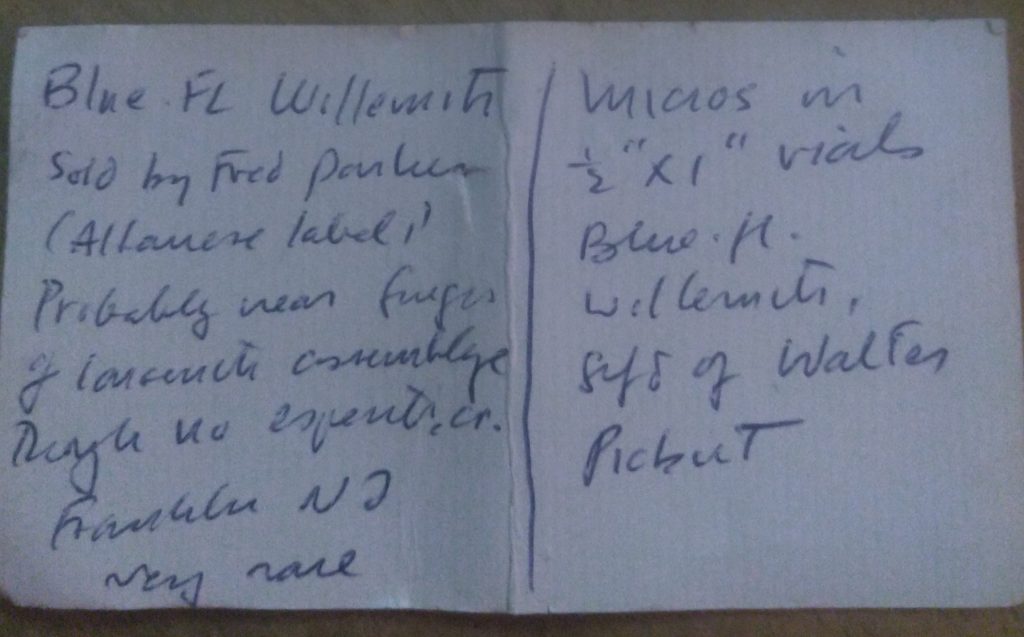 Blue FL Willemite
Sold by Fred Parker
(Albanese label)
Probably near fringes
of lawsonite assemblage
Though no esperite, cr.
Franklin NJ
very rare
Micros in
½" x 1" vials
Blue fl.
willemite,
gift of Walter
Pickut